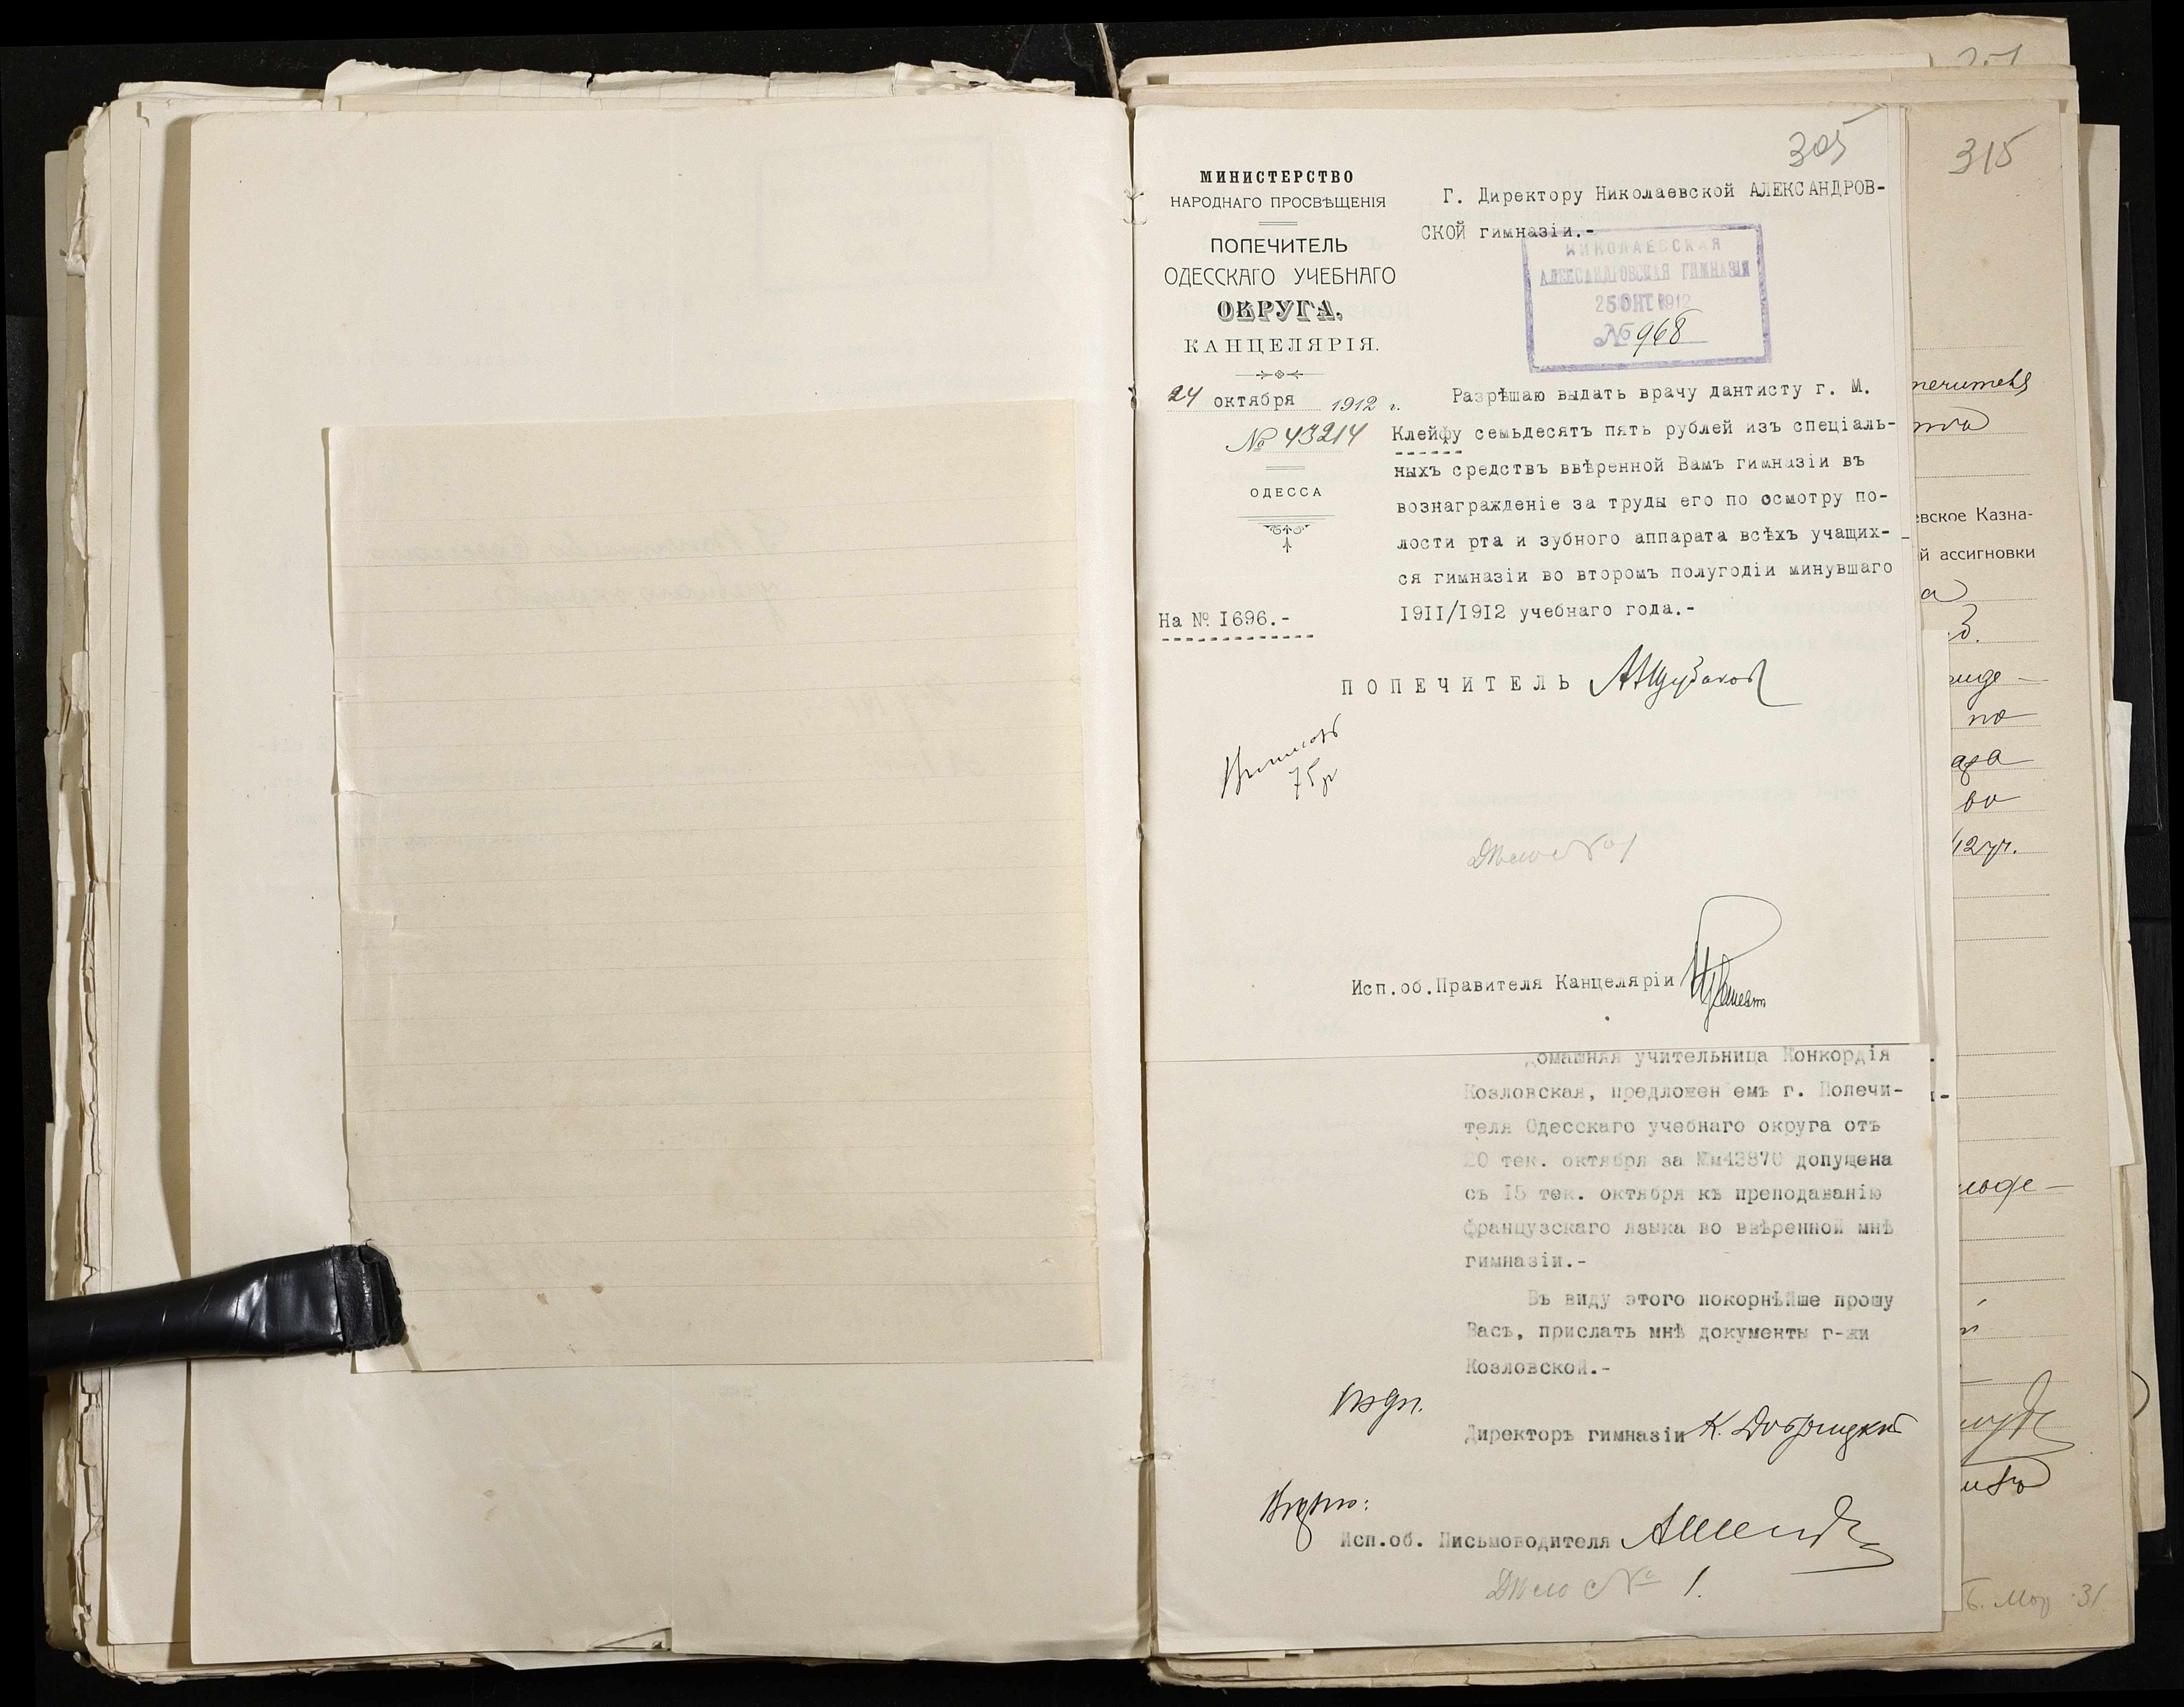 305
МИНИСТЕРСТВО
НАРОДНАГО ПРОСВѢЩЕНІЯ
ПОПЕЧИТЕЛЬ
ОДЕССКАГО УЧЕБНАГО
ОКРУГА.
КАНЦЕЛЯРІЯ.
24 октября 1912 г.
№ 43214
ОДЕССА
На № I696.-
Г. Директору Николаевской АЛЕКСАНДРОВ-
СКОЙ гимназіи.-
НИКОЛАЕВСКАЯ
АЛЕКСАНДРОВСКАЯ ГИМНАЗІЯ
25 ОКТ 1912
№ 968
Разрѣшаю выдать врачу дантисту г. М.
Клейфу семьдесятъ пять рублей изъ спеціаль-
ныхъ средствъ ввѣренной Вамъ гимназіи въ
вознагражденіе за труды его по осмотру по-
лости рта и зубного аппарата всѣхъ учащих-
ся гимназіи во второмъ полугодіи минувшаго
I9II/I9I2 учебнаго года.-
ПОПЕЧИТЕЛЬ
75 р
Дѣло № 1
Исп.об.Правителя Канцеляріи
домашняя учительница Конкордія
Козловская, предложен емъ г. Попечи-
теля Одесскаго учебнаго округа отъ
20 тек. октября за №м43870 допущена
съ I5 тек. октября къ преподаванію
французскаго языка во ввѣренной мнѣ
гимназіи.-
Въ виду этого покорнѣйше прошу
Васъ, прислать мнѣ документы г-жи
Козловской.-
Директоръ гимназіи К.
Вѣрно:
Исп.об. Письмоводителя
Дѣло № 1.
315
евское Казна-
й ассигновки
по
во